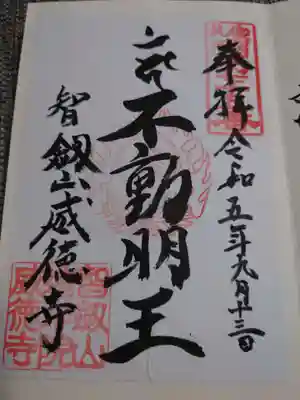 奉拝
令和五年九月十三日
不動明王
智劔山威徳寺
智劔山
威徳寺